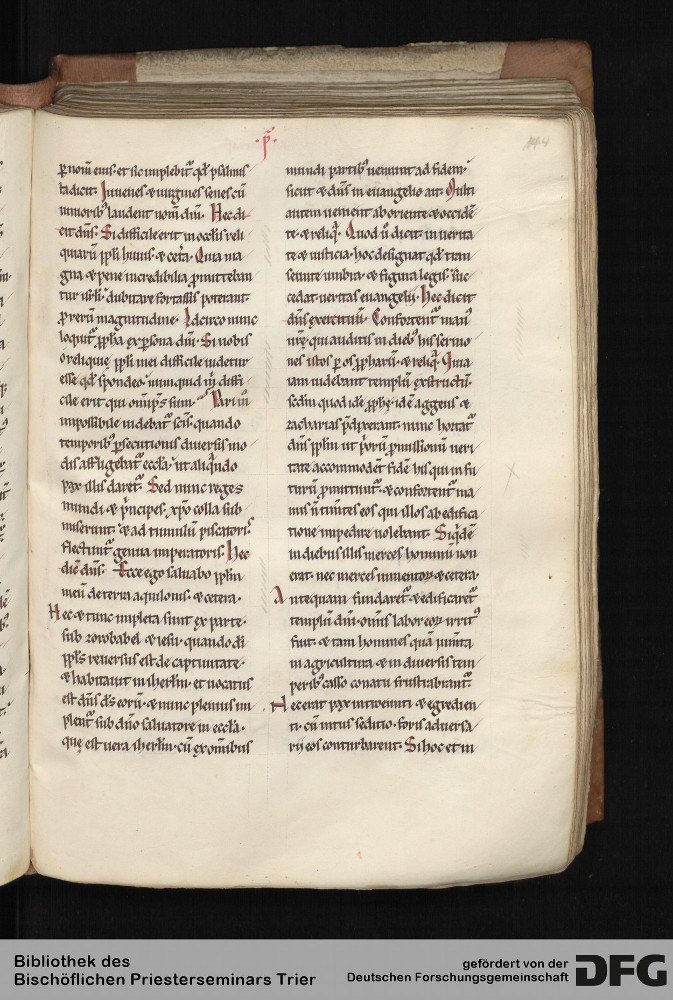 ·p̄·
144
p̲ nom̄ eius. et sic implebit᷑ qd̄ psalmis
ta dicit. Iuuenes & uirgines senes cū
iuniorib; laudent nom̄ dn̄i. Hec di
cit dn̄s. Si difficile erit in oculis reli
quiarū pp̄li huius. & cet̄a. Quia ma
gna & pene incredibilia promitteban
tur isrł. dubitare fortassis poterant
p̱ rerum magnitudine. Idcirco nunc
loquit᷑ pph̄a ex persona dn̄i. Si uobis
o reliquie pp̄li mei difficile uidetur
esse qd̄ spondeo. numquid m̄ diffi
cile erit qui om̄ps sum. Parum
impossibile uidebat᷑ scīs. quando
temporib; p̲secutionis diuersis mo
dis affligebat᷑ eccła. ut aliqn̄do
pax illis daret᷑. Sed nunc reges
mundi & p̄ncipes. xp̄o colla sub
miserunt. & ad tumulū piscatoris
flectunt᷑ genua imperatoris. Hec
dic̄ dn̄s. Ecce ego saluabo pp̄lm
meū de terra aquilonis. & cetera.
Hec & tunc impleta sunt ex parte.
sub zorobabel & iesu. quando dī
pp̄ls reuersus est de captiuitate.
& habitauit in iherłm. et uocatus
est dn̄s ds̄ eorū. & nunc plenius im
plent᷑ sub dn̄o saluatore in eccła.
quę est uera iherłm. cū ex omnibus
mundi partib; ueniunt ad fidem.
sicut & dn̄s in euangelio ait. Multi
autem uenient ab oriente & occidē
te. & reliq̄. Quod u̇ dicit in uerita
te & iusticia. hoc designat qd̄ tran
seunte umbra & figura legis. suc
cedat ueritas euangelii. Hec dicit
dn̄s exercituū. Confortent᷑ man᷒
ur̄ę. qui auditis in dieb; his sermo
nes istos p̲ os pph̄arū. & reliq̄. Quia
iam uidebant templū exstructū.
scdm̄ quod idē pph̄ę. idē aggeus &
zacharias p̄dixerant. nunc hortat᷑
dn̄s pp̄lm ut p̄orū promissionū ueri
tate accommodent fidē his qui in fu
turū promittunt᷑. & confortent᷑ ma
nus n̄ timentes eos qui illos ab edifica
tione impedire uolebant. Siq̄dē
in diebus illis merces hominū non
erat. nec merces iumentoꝝ. & cetera.
Antequam fundaret᷑ & edificaret᷑
templum dn̄i. omnis labor eoꝝ irrit᷒
fuit. & tam homines quā iumta
in agricultura & in diuersis tem
perib; casso conatu frustrabant᷑.
Nec erat pax introeunti & egredien
ti. cū intus seditio. foris aduersa
rii eos conturbarent. Si hoc et in
Bibliothek des
Bischöflichen Priesterseminars Trier
gefördert von der
Deutschen Forschungsgemeinschaft
DFG